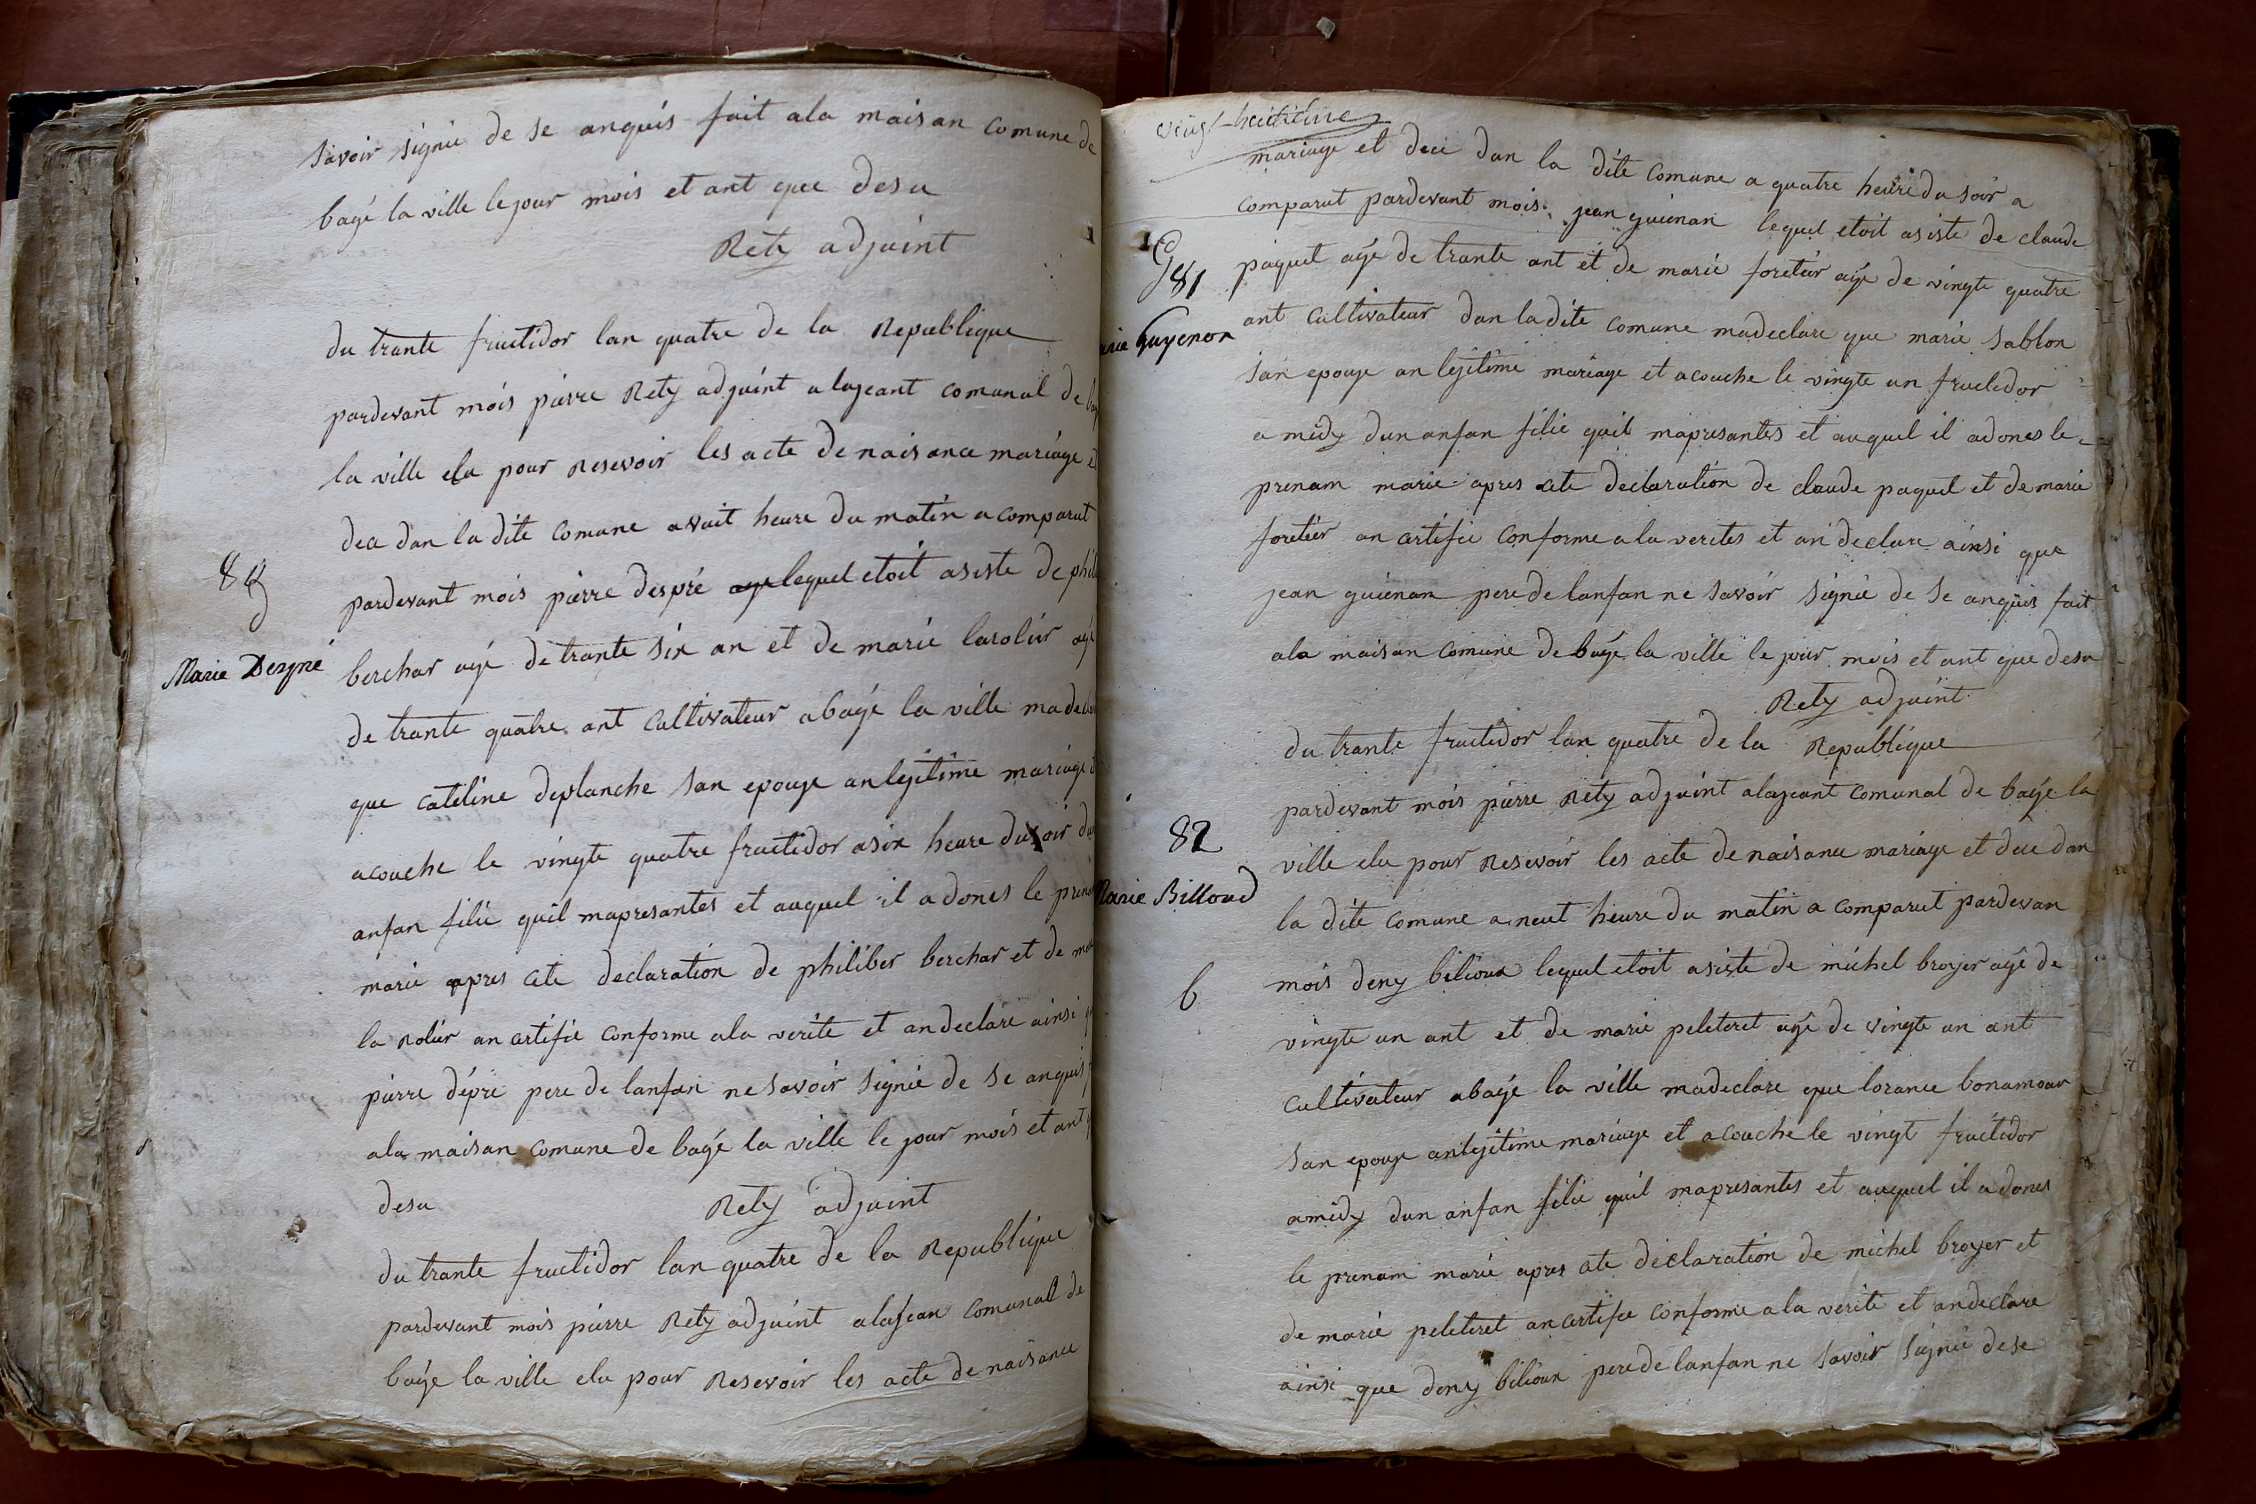 savoir signié de se anquis fait ala maisan comune de
bagé la ville le jour mois et ant que desu
Rety adjuint
du trante fructidor lan quatre de la Republique
pardevant mois pierre Rety adjuint a lageant comunal de
la ville elu pour Resevoir les acte de naisance mariage
dece dan la dite comune a vuit heure du matin a comparut
pardevant mois pierre despré lequel etoit asiste de
Marie Depré
berchar agé de trante six an et de marie larolier agé
de trante quatre ant cultivateur a bagé la ville
que cateline deplanche san epouse an legitime mariage
acouche le vingte quatre fructidor a six heure du soir
anfan filie quil mapresantes et auquel il a dones le
marie apres cete declaration de philiber berchar et de
la Rolier an certifie conforme ala verite et an declare ainsi
pierre dépré pere de lanfan ne savoir signié de se anquis
ala maisan comune de bagé la ville le jour mois et ant
desu
Rety adjuint
du trante fructidor lan quatre de la Republique
pardevant mois pierre Rety adjuint alajean comunal de
bagé la ville elu pour Resevoir les acte de naisance
vingt-huitième
mariage et dece dan la dite comune a quatre heure du soir a
comparut pardevant mois jean guienan lequel etoit asiste de claude
81
paquet agé de trante ant et de marie foretier agé de vingte quatre
Guyenon
ant cultivateur dan la dite comune madeclare que marie sablon
san epouse an legitime mariage et acouche le vingte un fructidor
a midy dun anfan filie quil mapresantes et auquel il adones le
prenam marie apres cete declaration de claude paquet et de marie
foretier an certifie conforme ala verites et an declare ainsi que
jean guienan pere de lanfan ne savoir signié de se anquis fait
ala maisan comune de bagé la ville le jour mois et ant que desu
Rety adjuint
du trante fructidor lan quatre de la Republique
pardevant mois pierre Rety adjuint alageant comunal de bagé la
82
ville elu pour Resevoir les acte de naisance mariage et dece dan
Marie Billoud
la dite comune a neut heure du matin a comparut pardevan
mois deny bilioux lequel etoit asiste de michel broyer agé de
b
vingte un ant et de marie peleteret agé de vingte un ant
cultivateur abagé la ville madeclare que lorance bonamour
san epouse anlegitime mariage et acouche le vingt fructidor
amidy dun anfan filie quil mapresantes et auquel il adones
le prenam marie apres cete declaration de michel broyer et
de marie peleteret an certifie conforme ala verite et andeclare
ainsi que deny bilioux pere de lanfan ne savoir signié de se